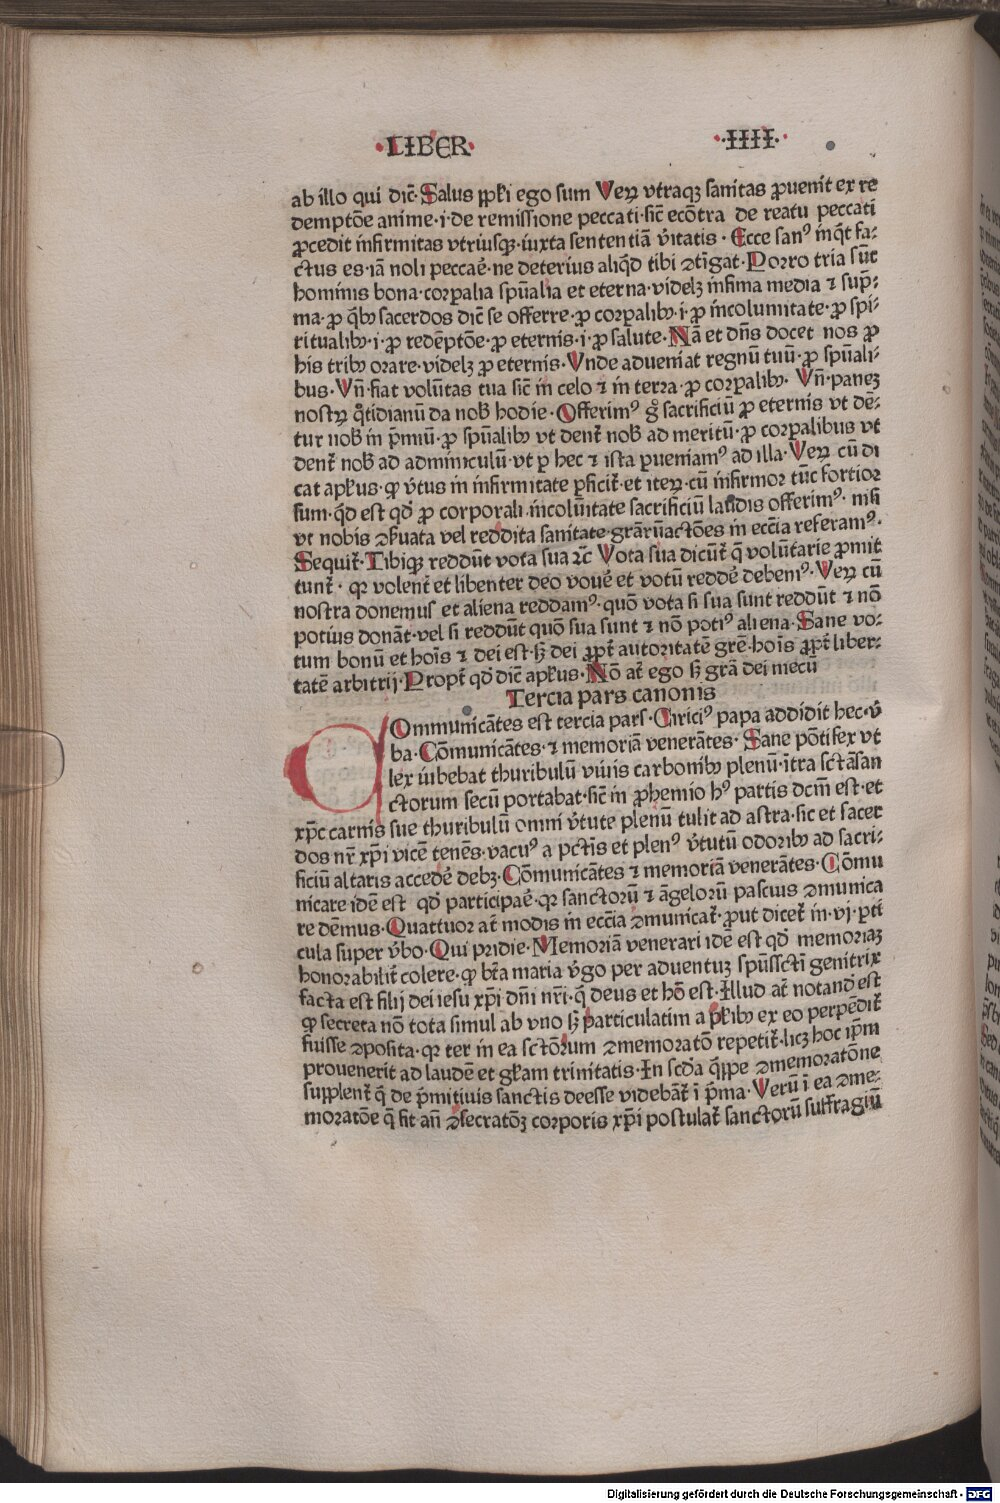 ·LIBER· ·IIII·
ab illo qui dic̄·Salus pp̄łi ego sum Veꝝ vtraqꝫ sanitas ꝓuenit ex re
demptōe anime·i·de remissione peccati·sic̄ ecōtra de reatu peccati
ꝓcedit infirmitas vtriusqꝫ·iuxta sententiā v̄itatis·Ecce sanꝰ inq̄t fa⸗
ctus es·iā noli peccar̄·ne deterius aliq̄d tibi ↄtīgat·Porro tria sūt
hominis bona·corꝑalia spūalia et eterna·videlꝫ infima media ⁊ sup̄⸗
ma·ꝓ q̄bꝰ sacerdos dic̄ se offerre·ꝓ corꝑalibꝰ·i·ꝓ incolumitate·ꝓ spi⸗
ritualibꝰ·i·ꝓ redēptōe·ꝓ eternis·i·ꝓ salute·Nā et dn̄s docet nos ꝓ
his tribꝰ orare·videlꝫ ꝓ eternis·Vnde adueniat regnū tuū·ꝓ spūali⸗
bus·Vn̄·fiat volūtas tua sic̄ in celo ⁊ in terra·ꝓ corꝑalibꝰ·Vn̄·paneꝫ
nostꝝ q̄tidianū da nob̄ hodie·Offerimꝰ g̊ sacrificiū ꝓ eternis vt dē⸗
tur nob̄ in p̄miū·ꝓ spūalibꝰ vt dent̄ nob̄ ad meritū·ꝓ corꝑalibus vt
dent̄ nob̄ ad adminiculū·vt ꝑ hec ⁊ ista ꝑueniamꝰ ad illa·Veꝝ cū di
cat ap̄łus·ꝙ v̄tus in infirmitate ꝑficit̄·et iteꝝ·cū infirmor tūc fortior
sum·q̄d est qd̄ ꝓ corporali incolūitate sacrificiū laudis offerimꝰ·nisi
vt nobis ↄseruata vel reddita sanitate·grāruꝫactōes in ecc̄ia referamꝰ·
Sequit̄·Tibiqꝫ reddūt vota sua ⁊c̄ Vota sua dicūt̄ q̄ volūtarie ꝓmit
tunt̄·qꝛ volent̄ et libenter deo vouē et votū reddē debemꝰ·Veꝝ cū
nostra donemus et aliena reddamꝰ·quō vota si sua sunt reddūt ⁊ nō
potius donāt·vel si reddūt quō sua sunt ⁊ nō potiꝰ aliena·Sane vo⸗
tum bonū et hoīs ⁊ dei est·sꝫ dei ꝓpt̄ autoritatē gr̄e·hoīs ꝓpt̄ liber⸗
tatē arbitrij·Propt̄ qd̄ dic̄ ap̄łus·Nō at̄ ego sꝫ gr̄a dei mecū
Tercia pars canonis
Communicātes est tercia pars·Ciriciꝰ papa addidit hec·v̄
ba·Cōmunicātes·⁊ memoriā venerātes·Sane pōtifex vt
lex iubebat thuribulū viuis carbonibꝰ plenū·ītra sctāsan
ctorum secū portabat·sic̄ in ꝓhemio hꝰ partis dcm̄ est·et
xp̄c carnis sue thuribulū omni v̄tute plenū tulit ad astra·sic et sacer
dos nr̄ xp̄i vicē tenēs·vacuꝰ a pctīs et plenꝰ v̄tutū odoribꝰ ad sacri⸗
ficiū altaris accedē debꝫ·Cōmunicātes ⁊ memoriā venerātes·Cōmu
nicare idē est qd̄ participar̄·qꝛ sanctorū ⁊ āgelorū pascuis ↄmunica
re dēmus·Quattuor at̄ modis in ecc̄ia ↄmunicat̄·ꝓut dicet̄ in·vj·pti
cula super v̄bo·Qui pridie·Memoriā venerari idē est qd̄ memoriaꝫ
honorabilit̄ colere·ꝙ bt̄a maria v̄go per aduentuꝫ spūssctī genitrix
facta est filij dei iesu xp̄i dn̄i nr̄i·q̄ deus et hō est·Illud at̄ notand̄ est
ꝙ secreta nō tota simul ab vno sꝫ particulatim a plībꝰ ex eo perpēdit̄
fuisse ↄposita·qꝛ ter in ea sctōrum ↄmemoratō repetit̄·licꝫ hoc ip̄m
prouenerit ad laudē et głam trinitatis·In scd̄a q̄ippe ↄmemoratōne
supplent̄ q̄ de p̄mitiuis sanctis deesse videbāt̄ ī p̄ma·Verū ī ea ↄme⸗
moratōe q̄ fit an̄ ↄsecratōꝫ corporis xp̄i postulat̄ sanctorū suffragiū
Digitalisierung gefördert durch die Deutsche Forschungsgemeinschaft - DFG